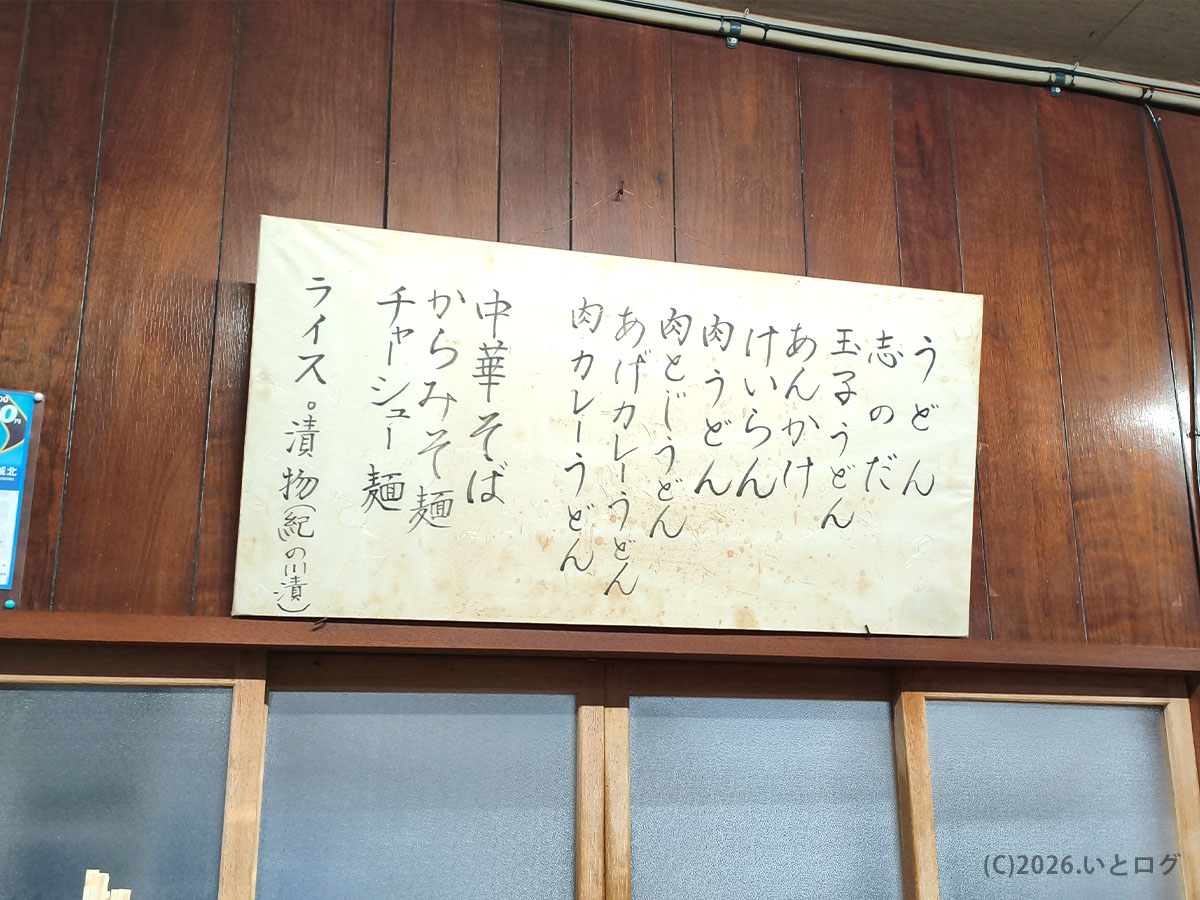 うどん
志のだ
玉子うどん
あんかけ
けいらん
肉うどん
肉とじうどん
あげカレーうどん
肉カレーうどん
中華そば
からみそ麺
チャーシュー麺
ライス。漬物(紀の川漬)
城北
(C)2026.いとログ